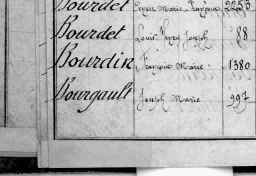 Bourdet Marie François 2253
Bourdet Louis Henri Joseph 88
Bourdin François Marie 1380
Bourgault Joseph Marie 997